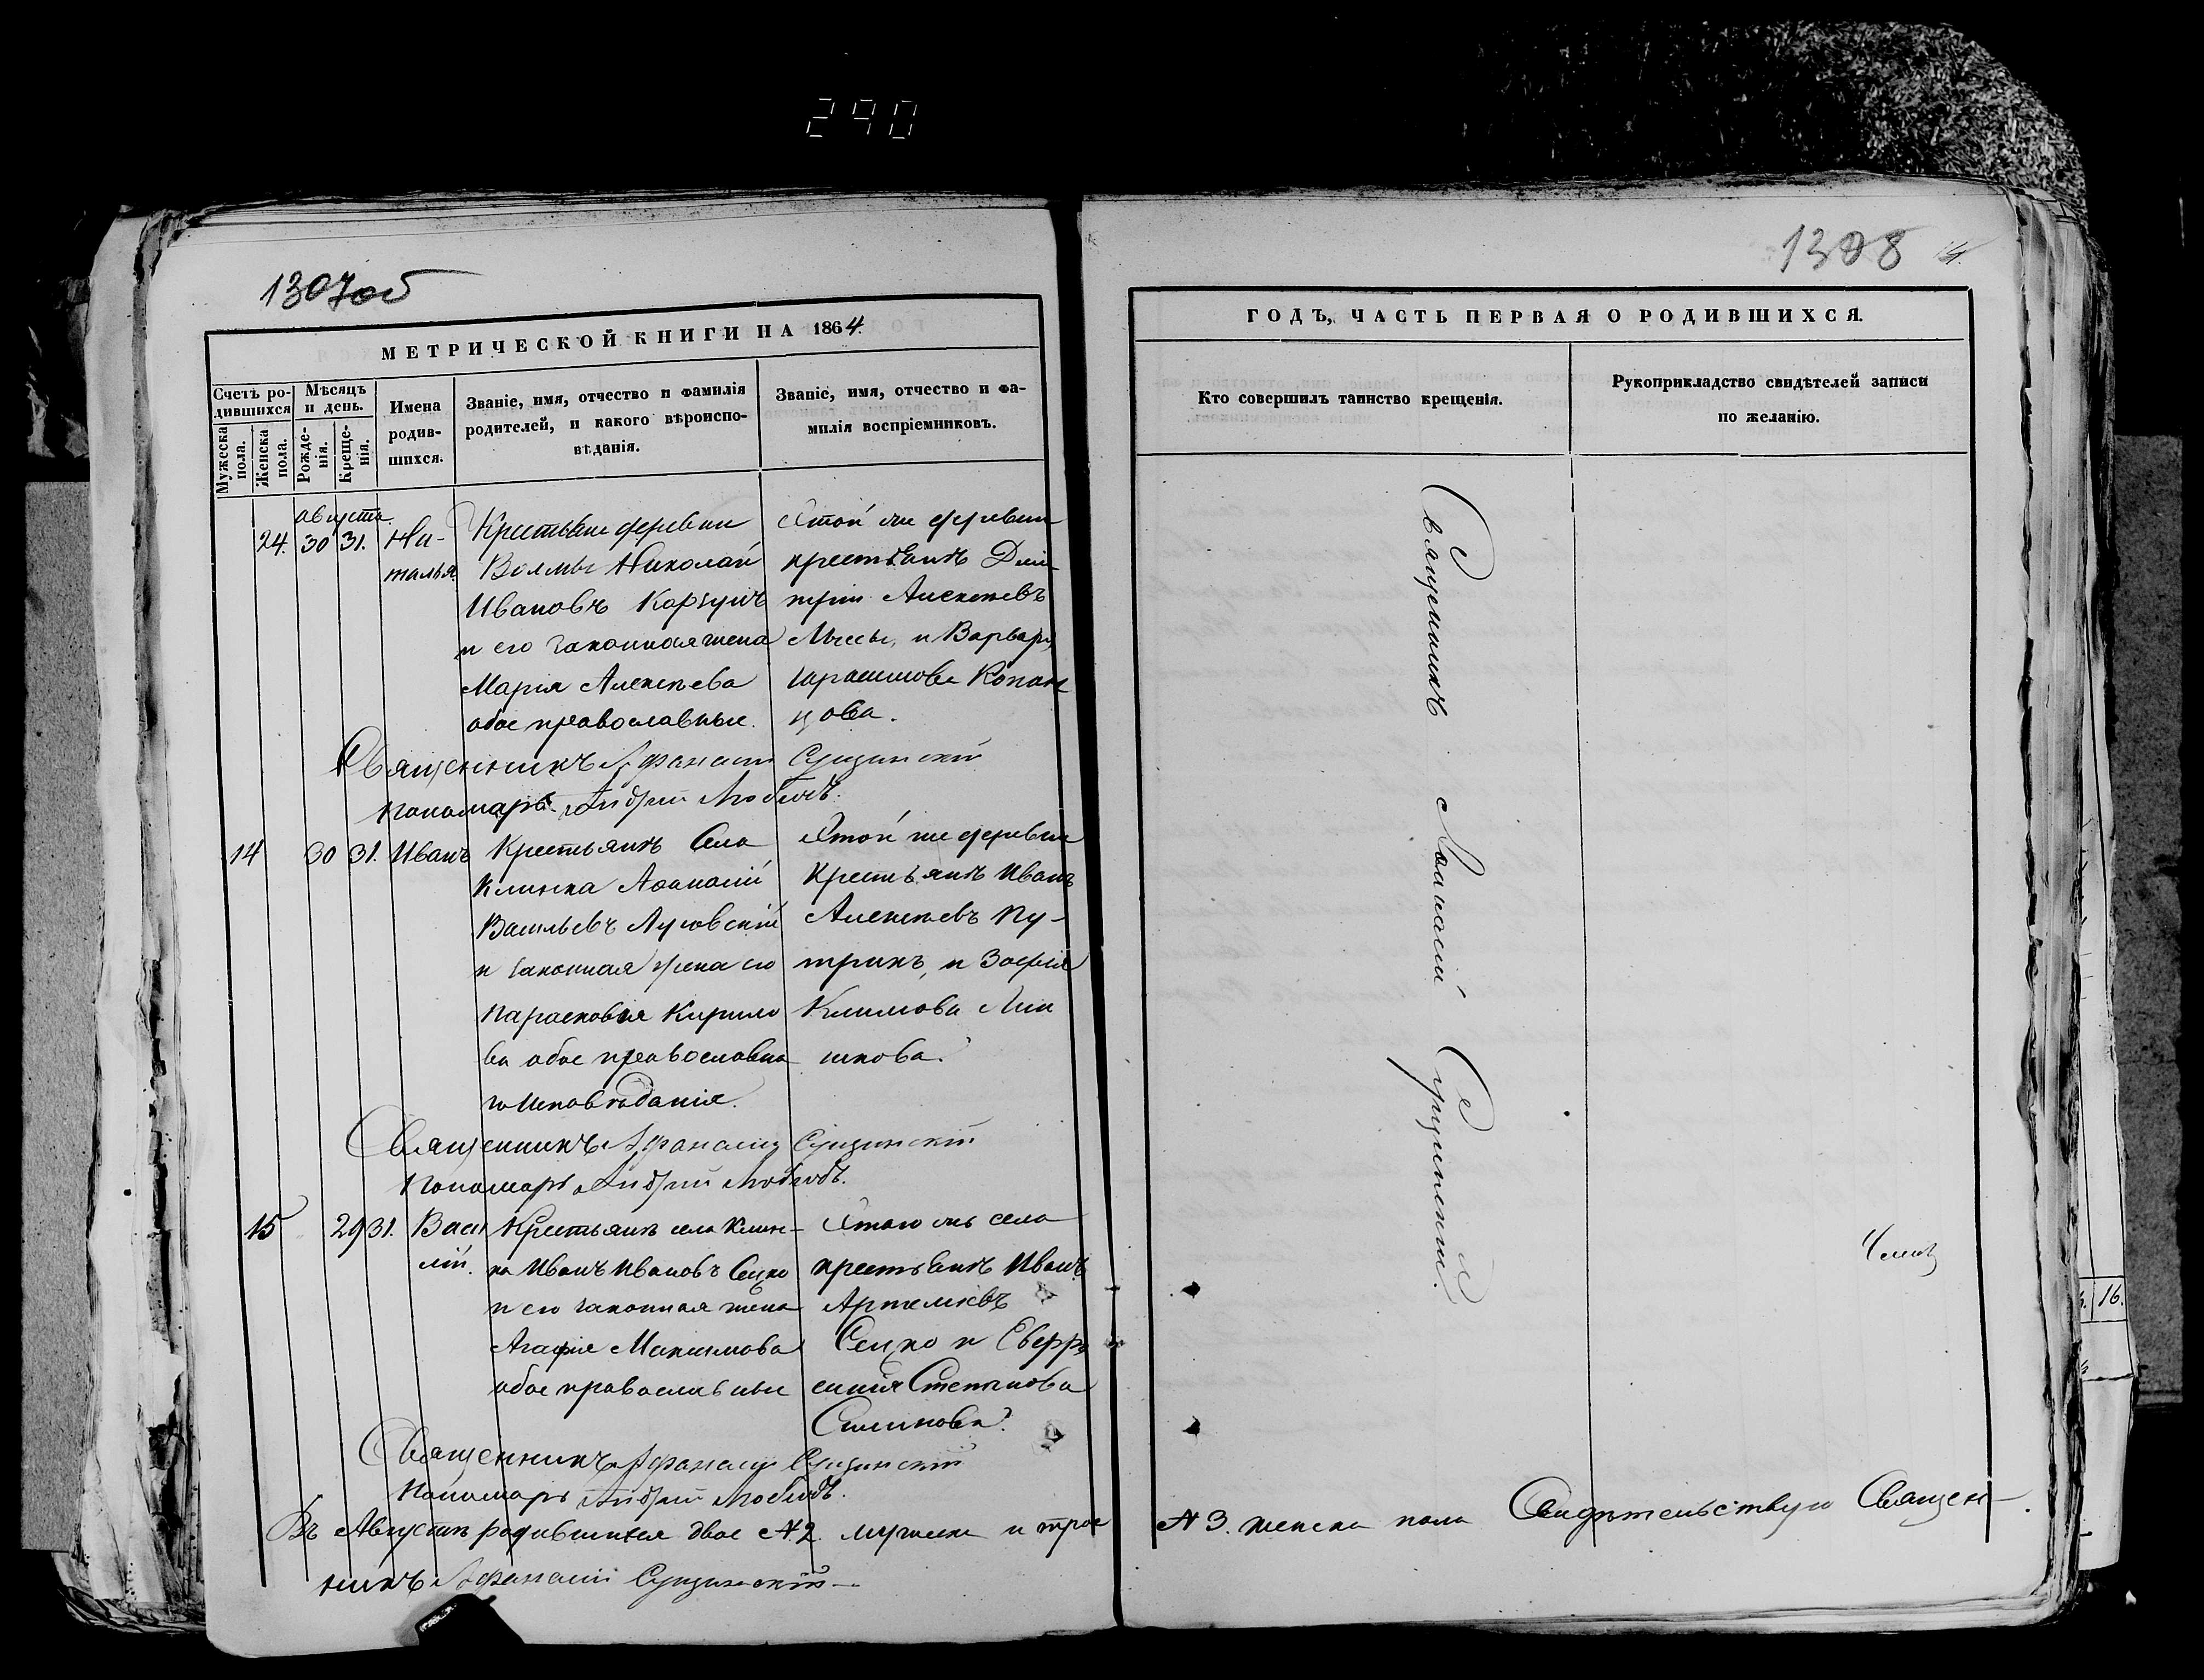 290
1307об
МЕТРИЧЕСКОЙ КНИГИ НА 1864.
Счетъ родившихся
Мѣсяцъ и день.
Мужеска пола.
Женска пола.
Рожденія.
Крещенія.
Имена
родив-
шихся.
Званіе, имя, отчество и фамилія
родителей, и какого вѣроиспо-
вѣданія.
Званіе, имя, отчество и фа-
милія воспріемниковъ.
августа
24. 30 31. На-
талья
Крестьяне деревни
Волмы Николай
Ивановъ
и его законная жена
Марія Алексѣева
обое православные.
Этой же деревни
крестьянъ Дми-
трій Алексѣевъ
и Варвара
цова.
Священникъ Афанасій Сущинскій
Пономарь
14 30 31. Иванъ
Крестьянъ Села
Клинка Аѳанасій
Васильевъ Луговскій
и законная жена его
Парасковія Кирило
ва обое православна
го исповѣданія.
Этой же деревни
Крестьянъ Иванъ
Алексѣевъ Пу-
трикъ, и Зофія
Климова
шкова.
Священникъ Афанасій Сущинскій
Пономарь
15 29 31. Васи
лій.
Крестьянъ села Клин-
ка Иванъ Ивановъ Сецко
и его законная жена
Агафія Максимова
обое православные
Этого же села
крестьянъ Иванъ
Артеміевъ
Сецко и
Степанова
Священникъ Афанасій Сущинскій
Пономарь
Въ Августѣ родившихся двое №2. мужеска и трое
никъ Афанасій Сущинскій
1308
ГОДЪ, ЧАСТЬ ПЕРВАЯ О РОДИВШИХСЯ.
Кто совершилъ таинство крещенія.
Рукоприкладство свидѣтелей записи
по желанію.
Священникъ Аѳанасій Сущинскій.
№ 3. женска пола Свидѣтельствую Священ-
16.